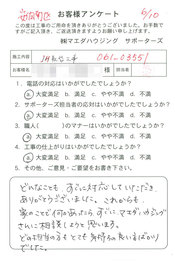 お客様アンケート 5/10
この度は工事のご用命を頂きありがとうございました。お手数で
すがご記入頂き、ご返送をよろしくお願い申し上げます。
㈱マエダハウジング サポーターズ
施工内容
061-03551
お客様名 様
1. 電話の対応はいかがでしたでしょうか?
大変満足 B. 満足 C. やや不満 d. 不満
2. サポーターズ担当者の対応はいかがでしたでしょうか?
大変満足 B. 満足 C. やや不満 d. 不満
3. 職人( )のマナーはいかがでしたでしょうか?
大変満足 B. 満足 C. やや不満 d. 不満
4. 工事の仕上がりはいかがでしたでしょうか?
大変満足 B. 満足 C. やや不満 d. 不満
5. その他、ご意見・ご要望をお書き下さい。
どんなことも すぐに対応していただき、
ありがとうございました。これからも
家のことで何かあったら、すぐに マエダハウジング
さんに相談しようと思います。
どの担当の方も とても気持ちの良い方ばかり
でした。